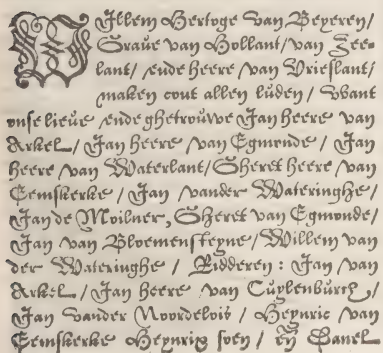 WJllem Hertoge van Beyeren/
Graue van Hollant/ van Zee-
lant/ ende heere van Vrieslant/
maken cont allen lüden/ Want
onse lieue ende ghetrouwe Jan heere van
Arkel/ Jan heere van Egmonde/ Jan
heere van Waterlant/ Gheret heere van
Eemskerke/ Jan vander Wateringhe/
Jan de Moilner, Gheret van Egmonde/
Jan van Bloemensteyne/ Willem van
der Wateringhe/ Ridderen: Jan van
Arkel/ Jan heere van Cuylenburch/
Jan vander Noordelois/ Heynric van
Eemskerke Heynrix soen/ eñ Danel